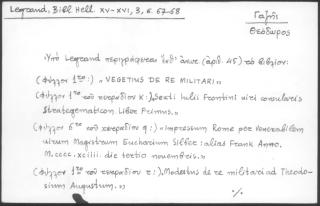 Legrand, Bibl. Hell. XV-XVI, 3, σ. 67-68
Γαζῆς
Θεόδωρος
Ὑπὸ Legrand περιγράφεται ἔνθ' ἄνω (ἀρ. 45) τὸ βιβλίον:
(φύλλον 1ον:) "VEGETIUS DE RE MILITARI"
(φύλλον 1ον τοῦ τετραδίου κ:) "Sexti Iulii Frontini viri consularis
Strategematicon Liber Primus."
(φύλλον 6ον τοῦ τετραδίου q:) "Impressum Rome per Venerabilem
virum Magistrum Eucharium Silber: alias Frank Anno.
M.cccc.xciiii. die tertio novembris."
(φύλλον 1ον τοῦ τετραδίου τ:) "Modestus de re militari ad Theodo-
sium Augustum."
%